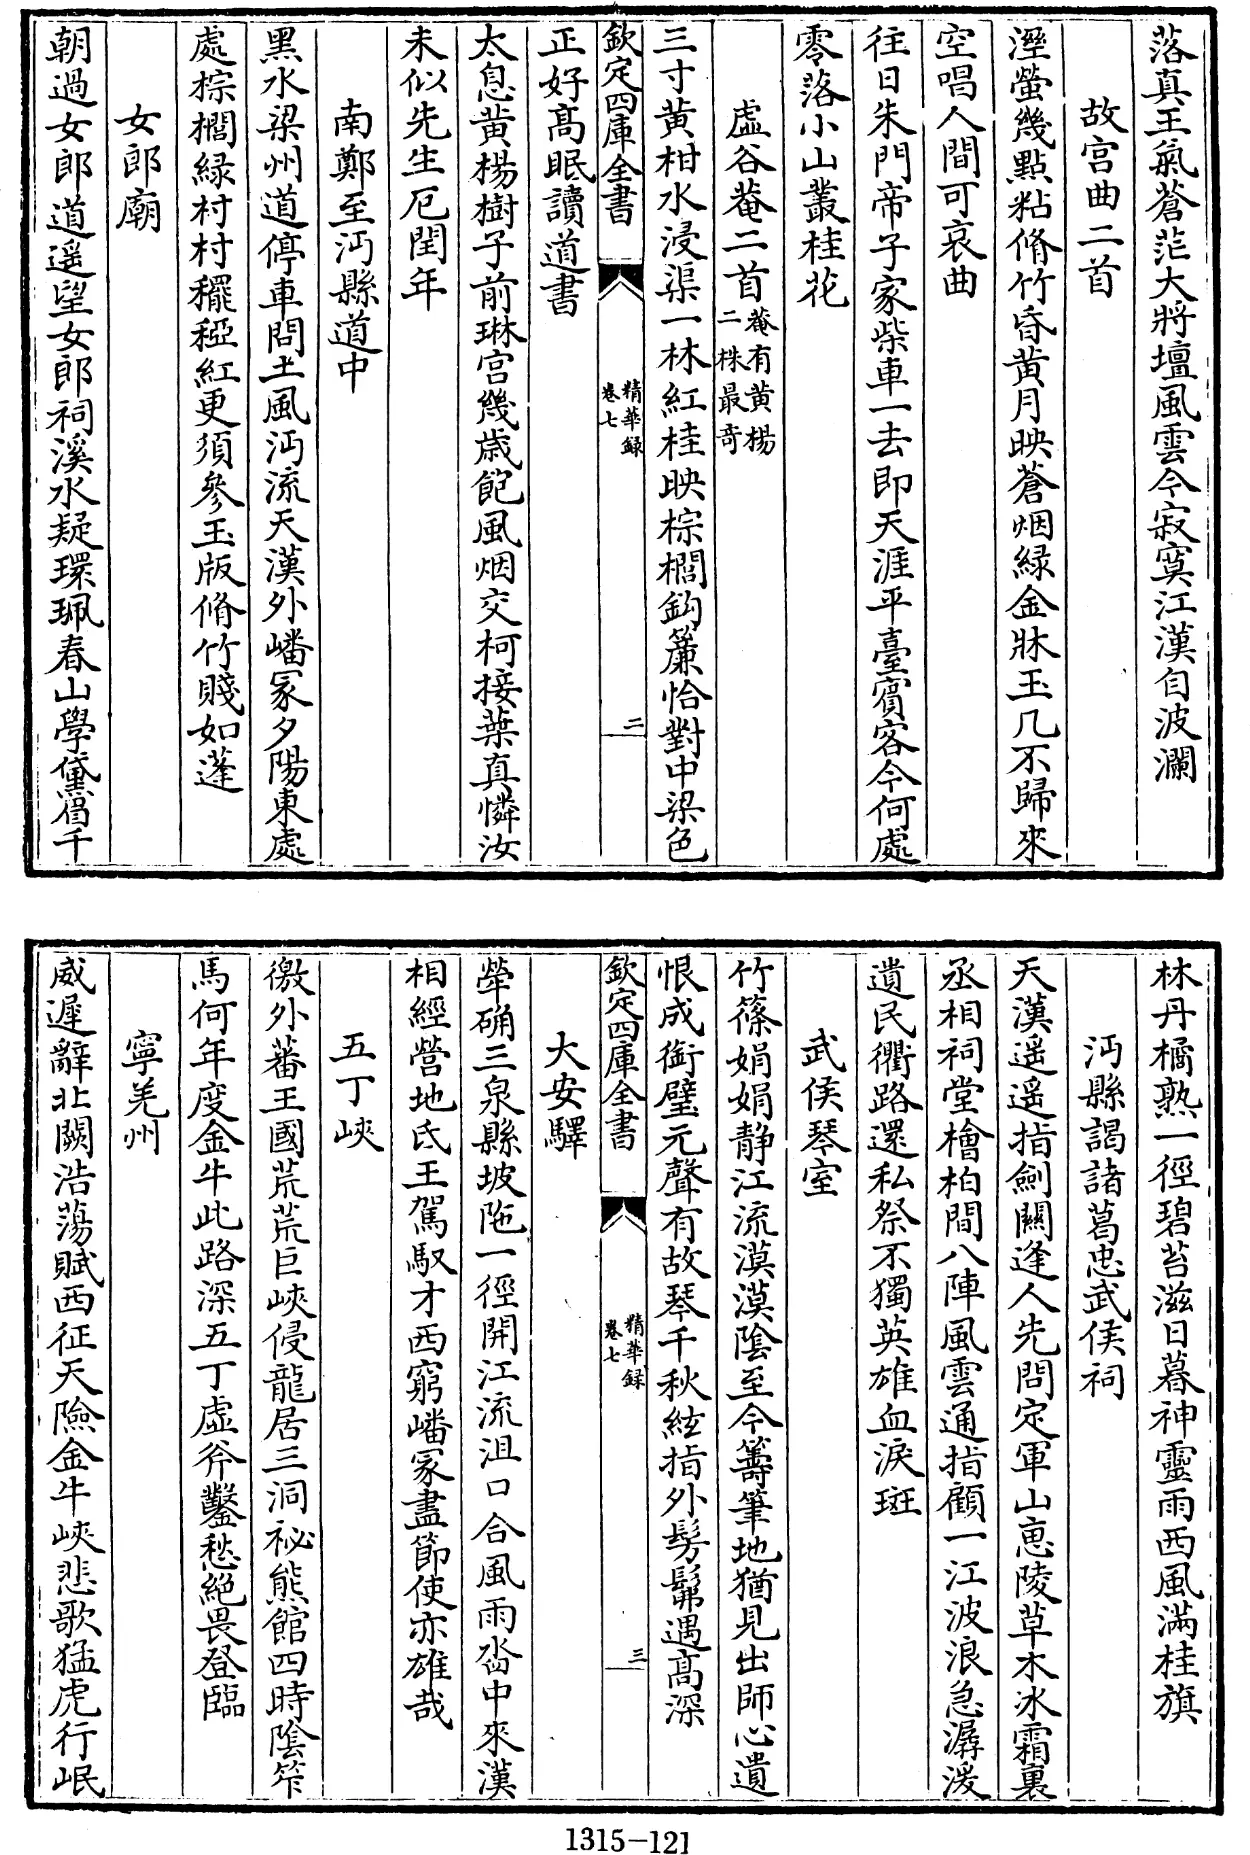 落真王氣蒼茫大將壇風雲今寂寞江漢自波瀾
故宫曲二首
溼螢幾㸃粘脩竹昏黄月映蒼烟緑金牀玉几不歸來
空唱人間可哀曲
往日朱門帝子家柴車一去即天涯平臺賓客今何處
零落小山叢桂花
虚谷菴二首菴有黄楊
二株最奇
三寸黄柑水浸渠一林紅桂映棕櫚鈎簾恰對中梁色
欽定四庫全書
精華録
卷七
二
正好髙眠讀道書
太息黄楊樹子前琳宫幾歳飽風烟交柯接葉真憐汝
未似先生厄閏年
南鄭至沔縣道中
黑水梁州道停車問土風沔流天漢外嶓冢夕陽東處
處棕櫚緑村村䆉稏紅更須參玉版脩竹賤如蓬
女郎廟
朝過女郎道遥望女郎祠溪水疑環珮春山學黛眉千
林丹橘熟一徑碧苔滋日暮神靈雨西風滿桂旗
沔縣謁諸葛忠武侯祠
天漢遥遥指劍關逢人先問定軍山惠陵草木冰霜裏
丞相祠堂檜柏間八陣風雲通指顧一江波浪急潺湲
遺民衢路還私祭不獨英雄血淚斑
武侯琴室
竹篠娟娟静江流漠漠陰至今籌筆地猶見出師心遺
恨成銜璧元聲有故琴千秋絃指外髣髴遇髙深
欽定四庫全書
精華録
卷七
三
大安驛
犖确三泉縣坡陁一徑開江流沮口合風雨𣶏中來漢
相經營地氐王駕馭才西窮嶓冢盡節使亦雄哉
五丁峽
徼外蕃王國荒荒巨峽侵龍居三洞祕熊館四時陰笮
馬何年度金牛此路深五丁虚斧鑿愁絶畏登臨
寧羌州
威遲辭北闕浩蕩賦西征天險金牛峽悲歌猛虎行岷
1315-121